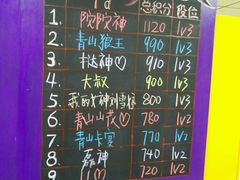 总积分 段位
1. 陀陀神 1120 lv3
2. 青山狼王 990 lv3
3. 扌达神♡ 910 lv3
4. 大叔 900 lv3
5. 我的女神刘雪 800 lv3
6. 青山山 780 lv2
7. 青山卡宴 770 lv2
8. 磊神 740 lv2
9. 720 lv2